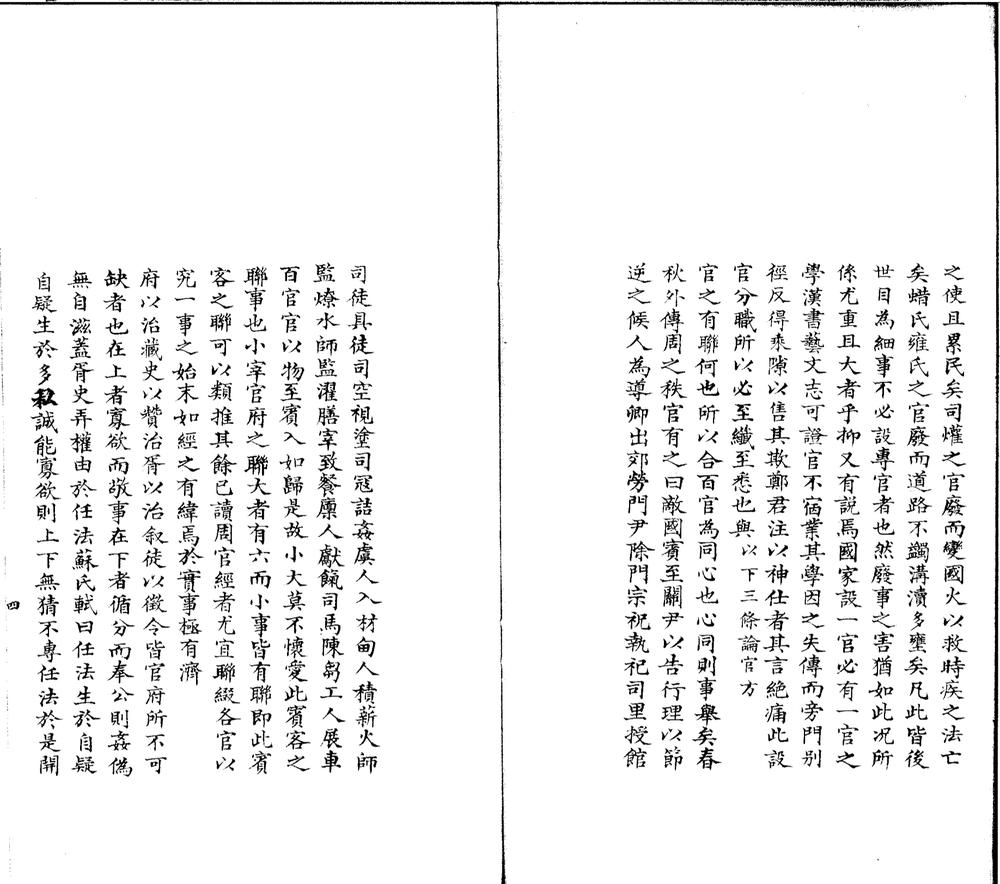 之使且累民矣司爟之官廢而變國火以救時疾之法亡
矣蜡氏雍氏之官廢而道路不蠲溝瀆多壅矣凡此皆後
世目為細事不必設專官者也然廢事之害猶如此况所
係尤重且大者乎抑又有説焉國家設一官必有一官之
學漢書藝文志可證官不宿業其學因之失傳而旁門别
徑反得乘隙以售其欺鄭君注以神仕者其言絶痛此設
官分職所以必至纖至悉也與以下三條論官方
官之有聯何也所以合百官為同心也心同則事舉矣春
秋外傳周之秩官有之曰敵國賓至關尹以告行理以節
逆之候人為導卿出郊勞門尹除門宗祝執祀司里授館
司徒具徒司空視塗司寇詰姦虞人入材甸人積薪火師
監燎水師監濯膳宰致餐廩人獻餼司馬陳芻工人展車
百官官以物至賓入如歸是故小大莫不懷愛此賓客之
聯事也小宰官府之聯大者有六而小事皆有聯即此賓
客之聯可以類推其餘已讀周官經者尤宜聯綴各官以
究一事之始末如經之有緯焉於實事極有濟
府以治藏史以贊治胥以治叙徒以徵令皆官府所不可
缺者也在上者寡欲而敬事在下者循分而奉公則姦僞
無自滋蓋胥史弄權由於任法蘇氏軾曰任法生於自疑
自疑生於多私誠能寡欲則上下無猜不專任法於是開
四